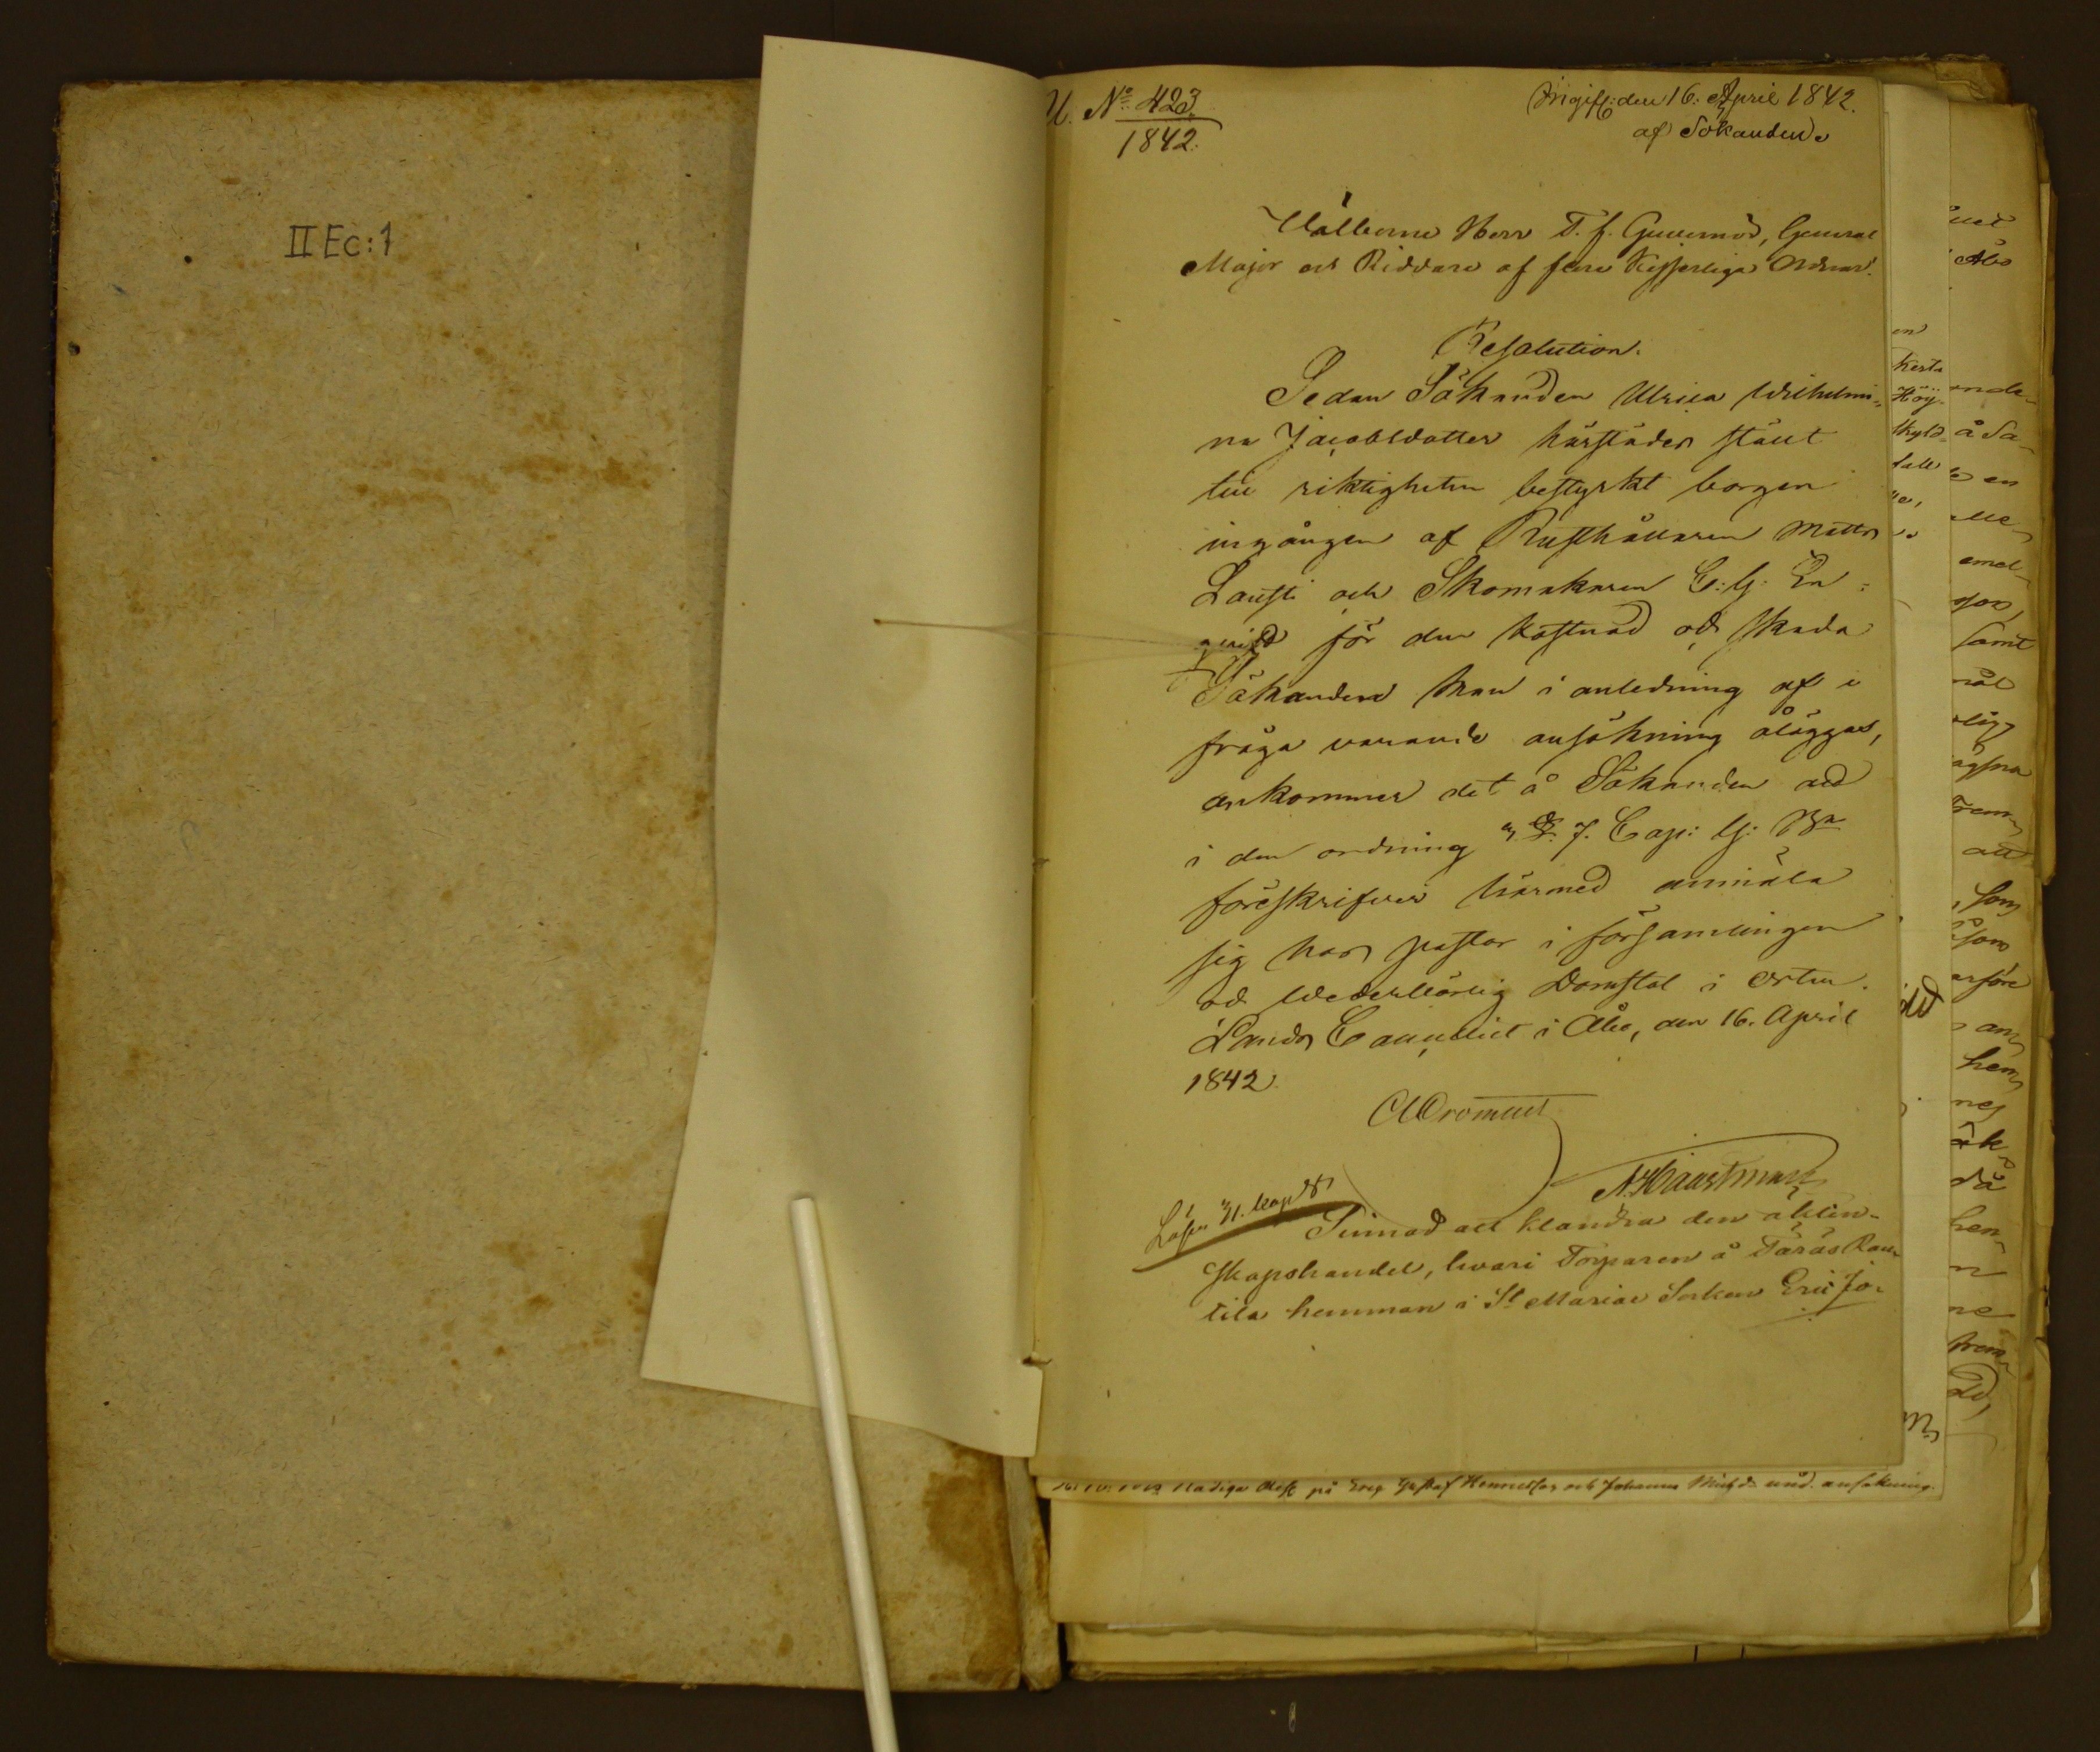 II Ec:1
U. No 423.
1842.
Ingif: den 16. April 1842.
af Sökanden
Välborne Herr T. f. Guvernör, General
Major och Riddare af flere Kejserliga Ordnar.
Resolution.
Sedan Sökanden Ulrica Wilhelmi-
na Jacobsdotter härstädes stält
till riktigheten bestyrkt borgen
ingången af Rusthållaren Matts
Lausti och Skomakaren C: G: En-
qvist för den kostnad och skada
Sökanden kan i anledning af i
fråga varande ansökning åläggas,
ankommer det å Sökanden att
i den ordning 7. Cap: G: B:
föreskrifver härmed anmäla
sig hos pastor i församlingen
och wederbörlig Domstol i orten.
Lands Cancelliet i Åbo, den 16. April
1842.
Cromuel
Sinnad att klandra den äkten-
skapshandel, hvari Torparen å Taras Ran-
tila hemman i St Mariae Socken Eric Jo-
Nådiga på Gustaf Henriksson och Johanna und. ansökning.